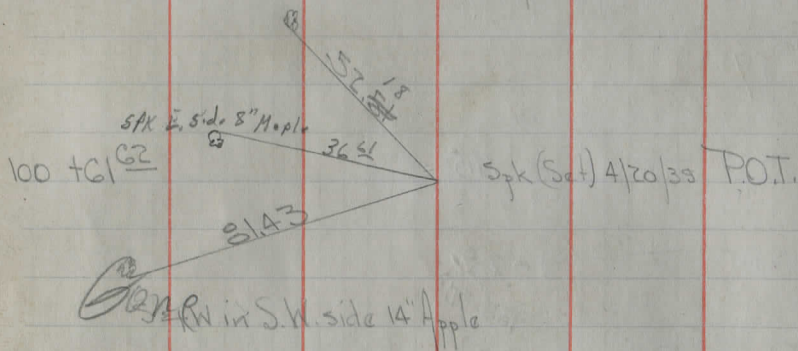 52.18
SPK E. Side 8" Maple
36 61
100 +61 62
Spk (Set) 4/20/39 P.O.T.
81.43
Gone RW in S.W. side 14" Apple